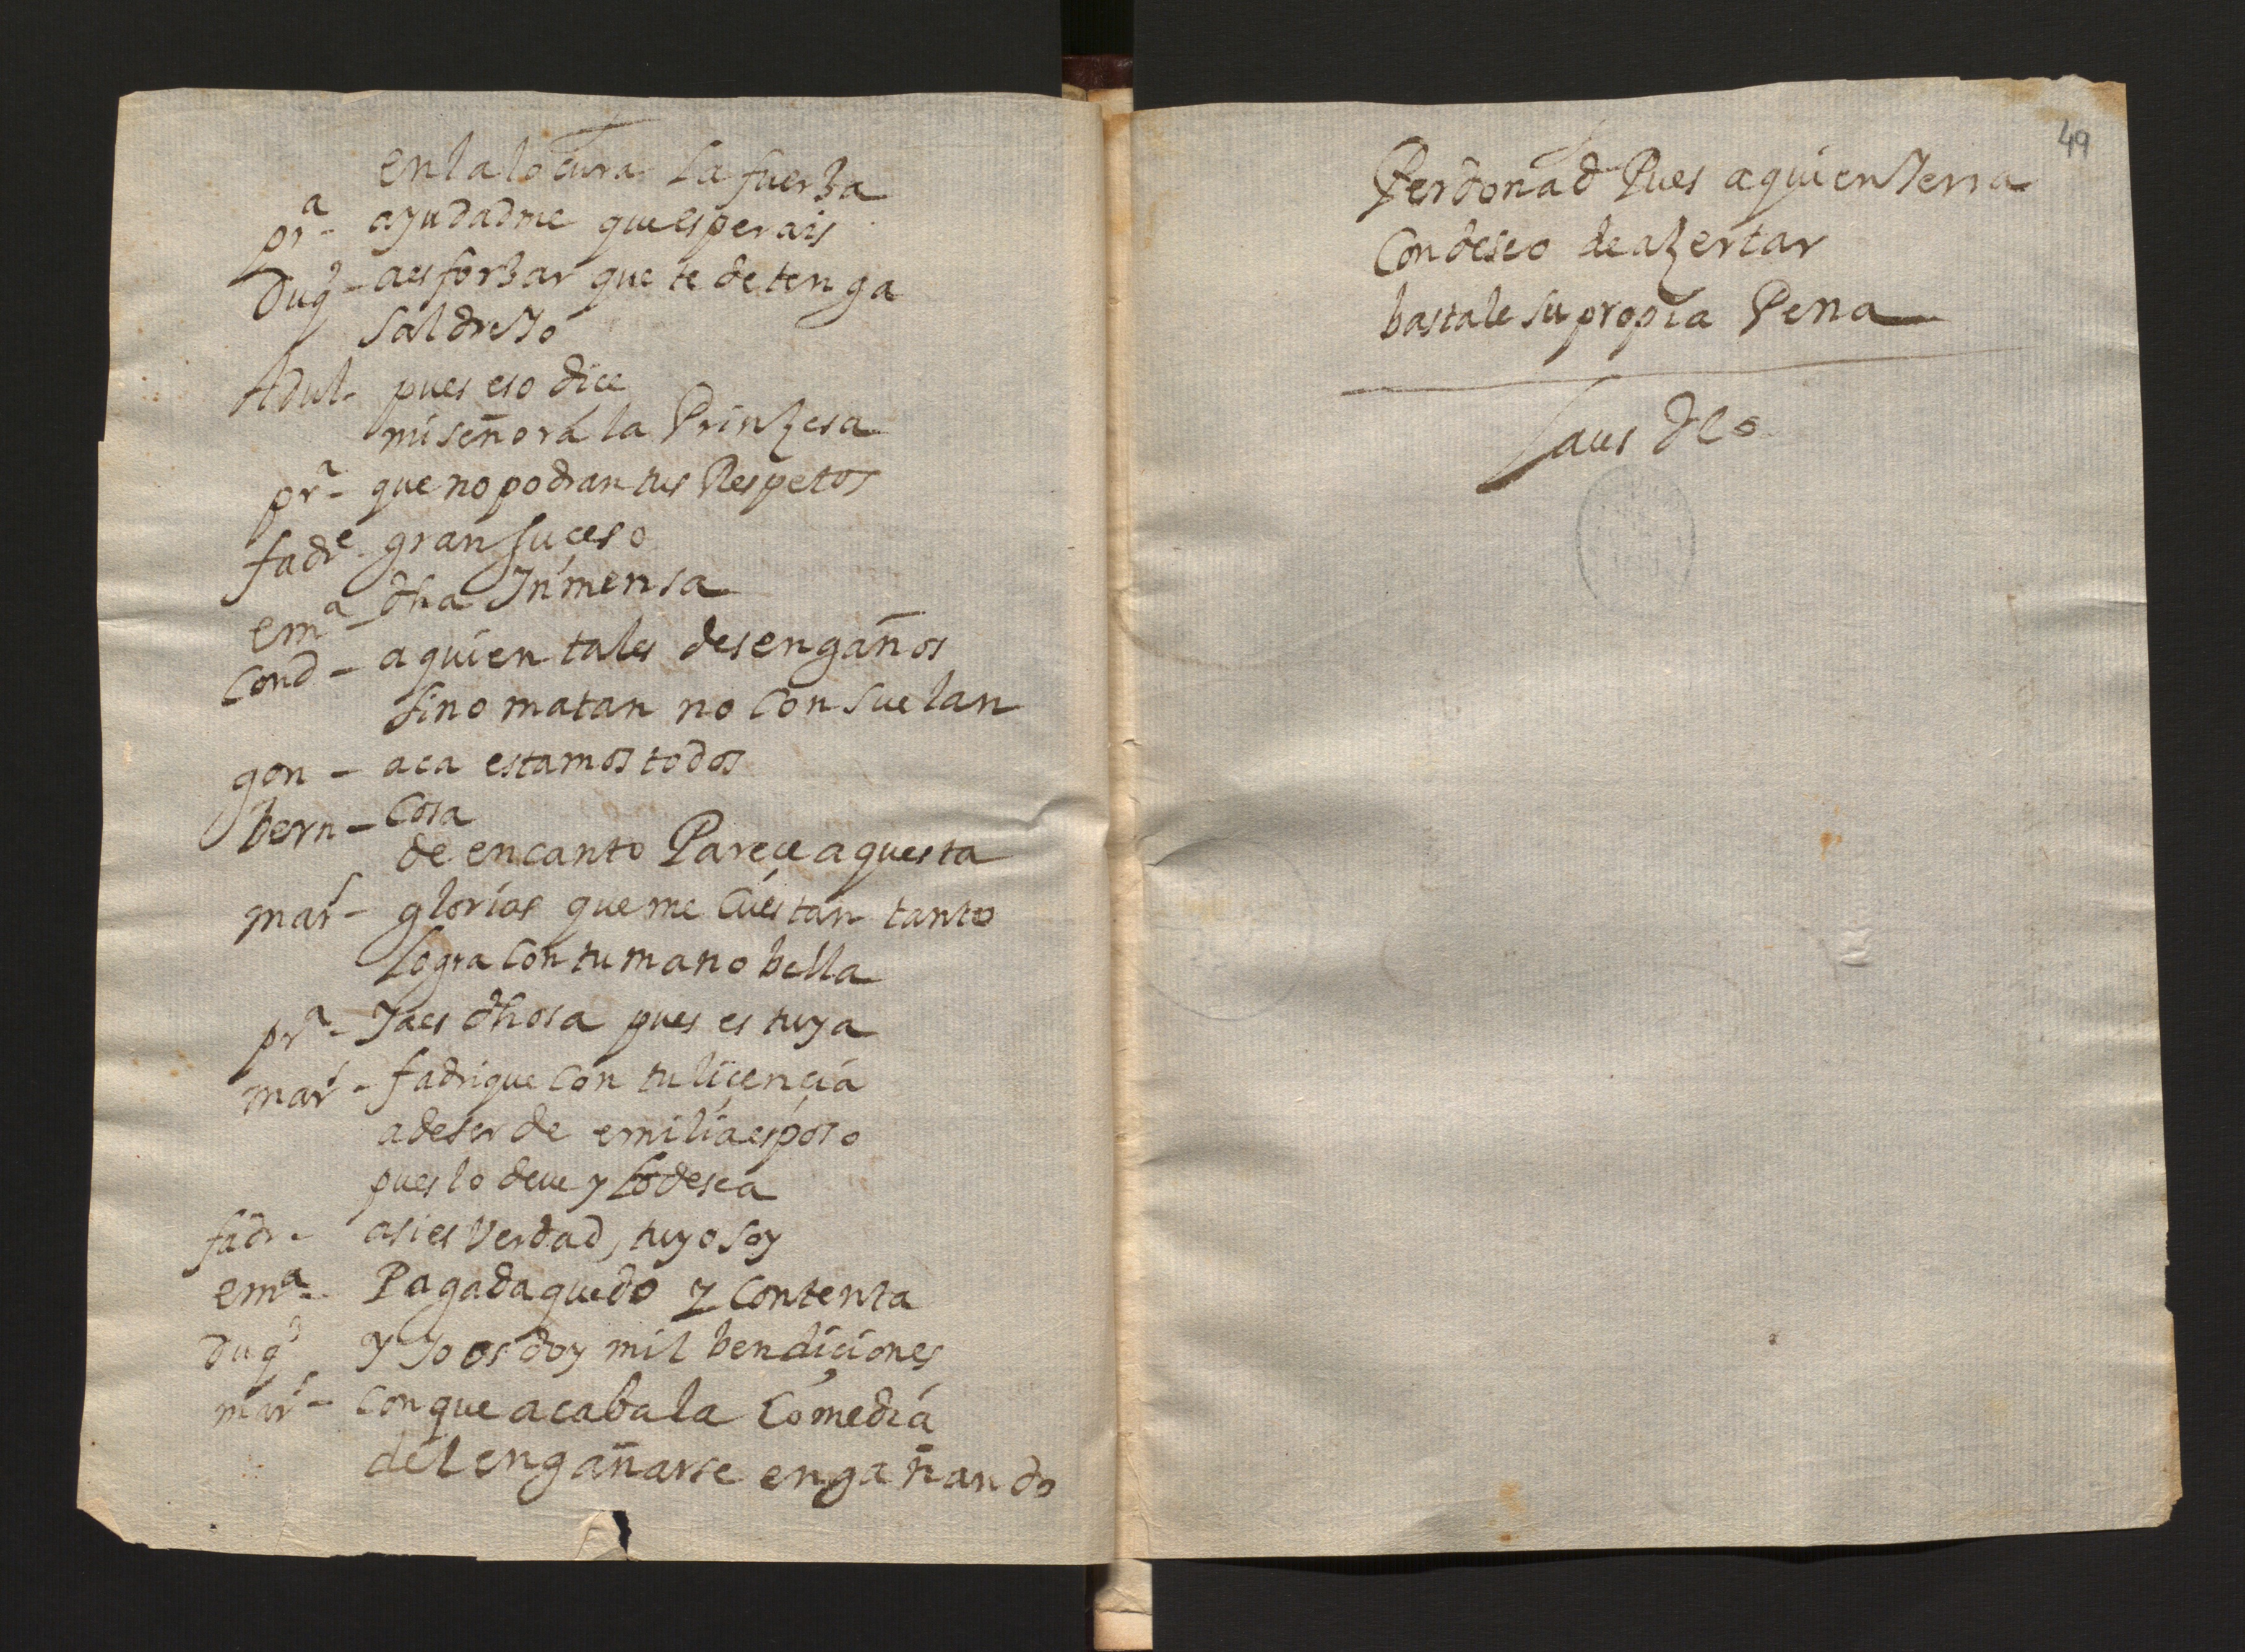 en la locura la fuerza
prª - ayudadme que esperais
Duqᵉ - a esforzar que te detenga
saldre Yo
Adul - pues eso dice
mi señora la Prinzesa
prª - que no podran tus Respetos
fadrᵉ - gran suçeso
emª - dha Ynmensa
Cond - a quien tales desengaños
sino matan no Consuelan
gon - aca estamos todos
bern - Cosa
de encanto Pareçe aquesta
mar - glorias que me Cuestan tanto
logra Con tu mano bella
prª - Ya es dhosa pues es tuya
mar - fadrique Con tu liçençia
a de ser de emilia esposo
pues lo deue y lo desea
fadr - asi es Verdad, tuyo soy
emª - Pagada quedo y Contenta
Duqᵉ Y Yo os doy mil bendiçiones
mar - con que acaba la Comedia
del engañarse engañando
49
Perdonad Pues a quien Yerra
Con deseo de azertar
bastale su propia Pena
Laus Deo